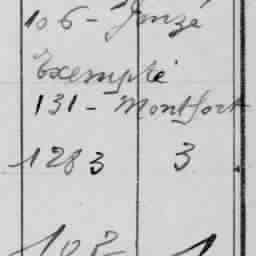 106 - Juzé
Exempté
131 - Montfort
1283 3